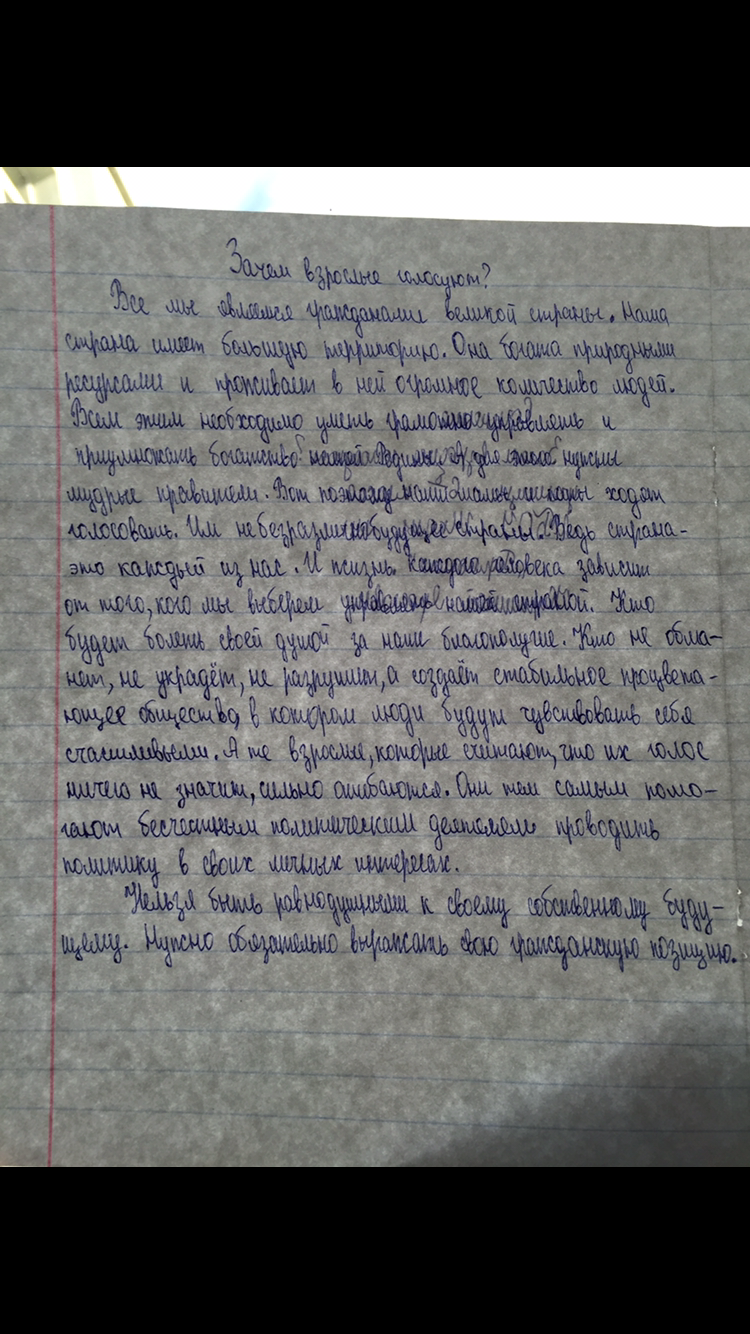 Зачем взрослые голосуют?
Все мы являемся гражданами великой страны. Наша
страна имеет большую территорию. Она богата природными
ресурсами и проживает в ней огромное количество людей.
Всем этим необходимо уметь грамотно управлять и
приумножать богатство нашей Родины. А для этого нужны
мудрые правители. Вот поэтому наши и ходят
голосовать. Им небезразлично будущее страны. Ведь страна-
это каждый из нас. И жизнь каждого человека зависит
от того, кого мы выберем управлять нашей страной. Кто
будет болеть своей душой за наше благополучие. Кто не обма-
нет, не украдёт, не разрушит, а создаёт стабильное процвета-
ющее общество, в котором люди будут чувствовать себя
счастливыми. А те взрослые, которые считают, что их голос
ничего не значит, сильно ошибаются. Они тем самым помо-
гают бесчестным политическим деятелям проводить
политику в своих личных интересах.
Нельзя быть равнодушными к своему собственному буду-
щему. Нужно обязательно выражать свою гражданскую позицию.